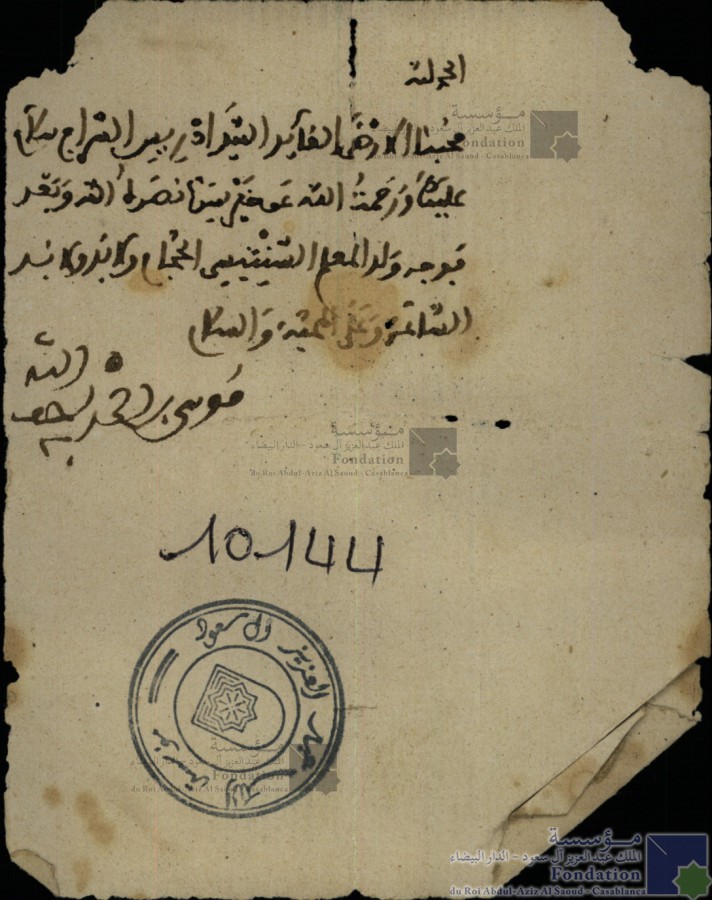 الحمد لله
محبنا الارضى القايد العربي السراج سلام
عليك ورحمت الله عن خير سيدنا نصره الله وبعد
فوجه ولد المعلم الحجام ولابد ولابد
الساعة وعلى المحبة والسلام
موسى بن احمد لطف الله به
مؤسسة
الملك عبد العزيز آل سعود - الدار البيضاء
Fondation
du Roi Abdul-Aziz Al Saoud - Casablanca
مؤسسة
الملك عبد العزيز آل سعود - الدار البيضاء
Fondation
du Roi Abdul-Aziz Al Saoud - Casablanca
10144
مؤسسة الملك عبد العزيز آل سعود
مؤسسة
الملك عبد العزيز آل سعود - الدار البيضاء
Fondation
du Roi Abdul-Aziz Al Saoud - Casablanca
مؤسسة
الملك عبد العزيز آل سعود - الدار البيضاء
Fondation
du Roi Abdul-Aziz Al Saoud - Casablanca